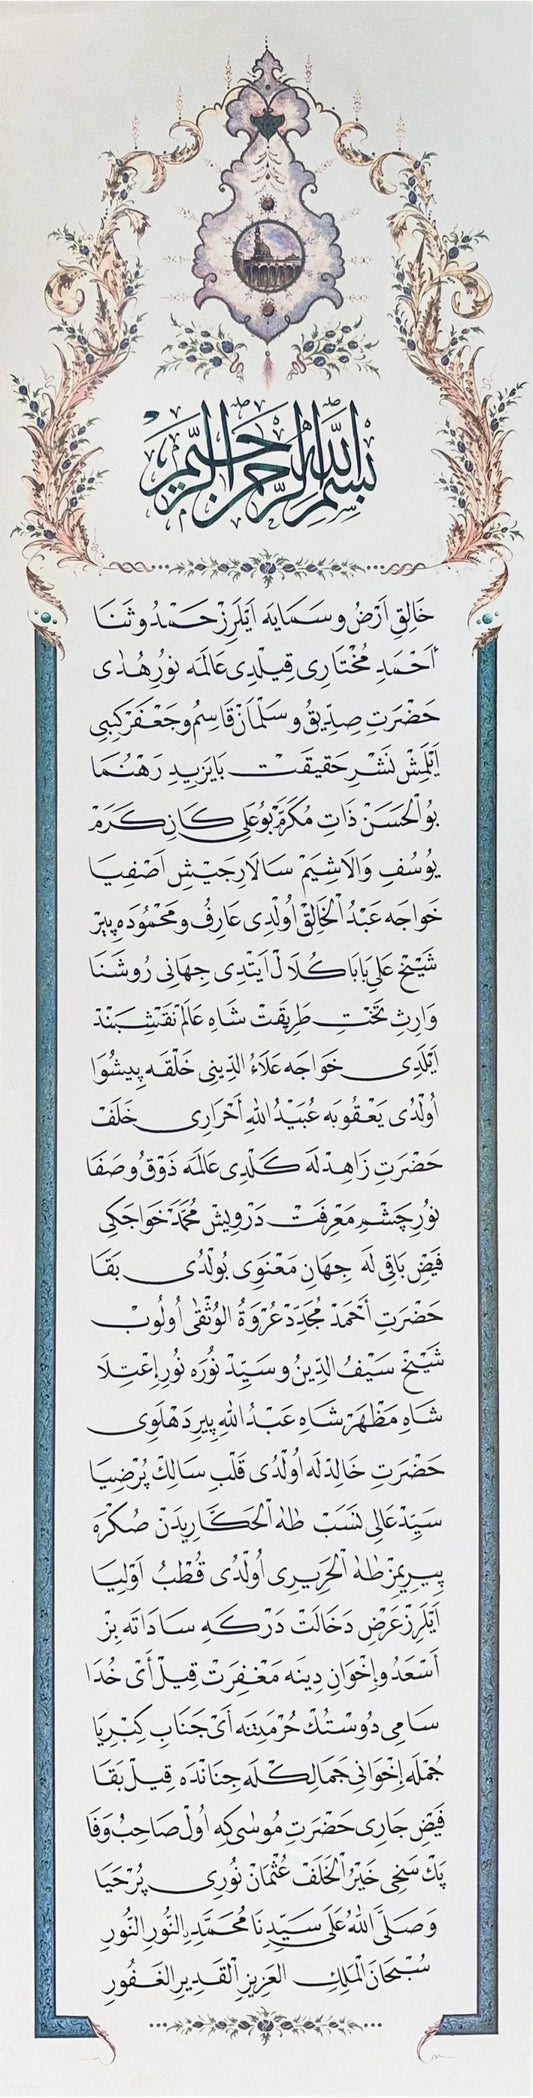 بسم الله الرحمن الرحيم
خَالِقِ اَرْضُ و سَمَايَه اَيْلَرِزْ حَمْدُ و ثَنَا
اَحْمَدِ مُخْتَارِى قِيلْدِى عَالَمَه نُورِ هُدٰى
حَضْرَتِ صِدِّيقُ و سَلْمَانْ قَاسِمُ و جَعْفَرْ كِبِى
اَيْلَمِشْ نَشْرِ حَقِيقَتْ بَايَزِيدِ رَهْنُمَا
بُو الْحَسَنْ ذَاتِ مُكَرَّمْ بُو عَلِى كَانِ كَرَمْ
يُوسُفِ وَالَاشِيَمْ سَالَارِ جَيْشِ اَصْفِيَا
خَواجَه عَبْدُ الْخَالِقْ اُولْدِى عَارِفُ و مَحْمُودَه پِيرْ
شَيْخْ عَلِى بَابَا كُلَالْ اَيْتْدِى جِهَانِى رُوشَنَا
وَارِثِ تَخْتِ طَرِيقَتْ شَاهِ عَالَمْ نَقْشِبَنْدْ
اَيْلَدِى خَوَاجَه عَلَاءُ الدِّينِى خَلْقَه پِيشُوَا
اُولْدُى يَعْقُوبَه عُبَيْدُ اللّٰهِ اَحْرَارِى خَلَفْ
حَضْرَتِ زَاهِدْلَه كَلْدِى عَالَمَه ذَوْقُ و صَفَا
نُورِ چَشْمِ مَعْرِفَتْ دَرْوِيشْ مُحَمَّدْ خَوَاجَكِى
فَيْضِ بَاقِى لَه جِهَانِ مَعْنَوِى بُولْدُى بَقَا
حَضْرَتِ اَحْمَدْ مُجَدِّدْ عُرْوَةُ الْوُثْقٰى اُولُوبْ
شَيْخْ سَيْفُ الدِّينُ و سَيِّدْ نُورَه نُورِ اِعْتِلَا
شَاهِ مَظْهَرْ شَاهِ عَبْدُ اللّٰهِ پِيرِ دَهْلَوِى
حَضْرَتِ خَالِدْلَه اُولْدُى قَلْبِ سَالِكْ پُرْضِيَا
سَيِّدِ عَالِى نَسَبْ طٰهٰ الْحَكَّارِيدَنْ صُكْرَه
پِيرِيمِزْ طٰهٰ الْحَرِيرِى اُولْدُى قُطْبُ اَوْلِيَا
اَيْلَرِزْ عَرْضِ دَخَالَتْ دَرْكَهِ سَادَاتَه بِزْ
اَسْعَدُ و اِخْوَانِ دِينَه مَغْفِرَتْ قِيلْ اَىْ خُدَا
سَامِى دُوسْتُكْ حُرْمَتِنَه اَىْ جَنَابِ كِبْرِيَا
جُمْلَه اِخْوَانِى جَمَالِكْلَه جِنَانْدَه قِيلْ بَقَا
فَيْضِ جَارِى حَضْرَتِ مُوسٰى كِه اُولْ صَاحِبْ وَفَا
پَكْ سَخِى خَيْرُ الْخَلَفْ عُثْمَانْ نُورِى پُرْحَيَا
وَصَلَّى اللّٰهُ عَلٰى سَيِّدِنَا مُحَمَّدٍ النُّورِ النُّورِ
سُبْحَانَ الْمَلِكِ الْعَزِيزِ الْقَدِيرِ الْغَفُورِ